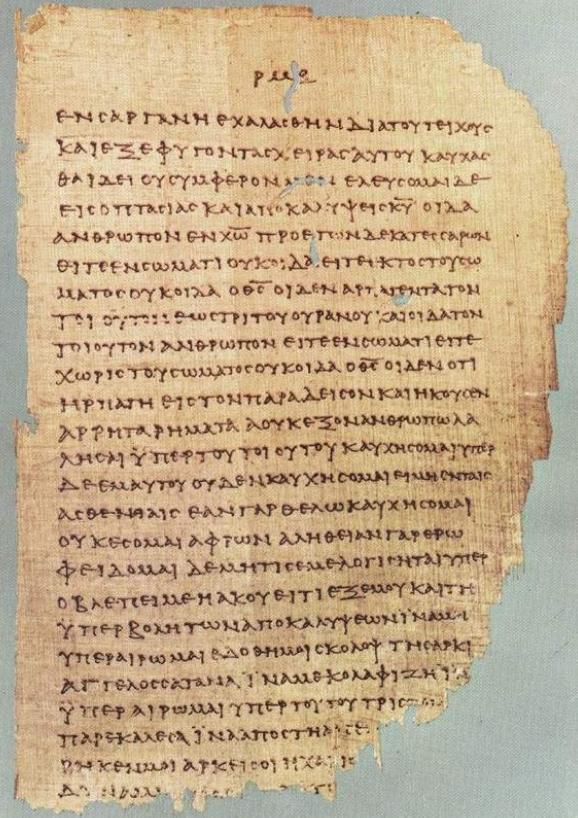 ΕΝϹΑΡΓΑΝΗ ΕΧΑΛΑϹΘΗΝ ΔΙΑΤΟΥΤΕΙΧΟΥϹ
ΚΑΙΕΞΕΦΥΓΟΝΤΑϹΧΕΙΡΑϹΑΥΤΟΥ ΚΑΥΧΑϹ
ΘΑΙΔΕΙ ΟΥϹΥΜΦΕΡΟΝ ΕΛΕΥϹΟΜΑΙΔΕ
ΕΙϹΟΠΤΑϹΙΑϹ ΚΑΙΑΠΟΚΑΛΥΨΕΙϹΚ̅Υ̅ ΟΙΔΑ
ΑΝΘΡΩΠΟΝ ΕΝΧ̅Ω̅ ΠΡΟΕΤΩΝΔΕΚΑΤΕϹϹΑΡΩΝ
ΕΙΤΕΕΝϹΩΜΑΤΙ ΟΥΚΟΙΔΑ ΕΙΤΕΕΚΤΟϹΤΟΥϹΩ
ΜΑΤΟϹΟΥΚΟΙΔΑ ΟΘ̅Ϲ̅ ΟΙΔΕΝ ΑΡΠΑΓΕΝΤΑΤΟΝ
ΤΟΙΟΥΤΟΝ ΕΩϹΤΡΙΤΟΥΟΥΡΑΝΟΥ ΚΑΙΟΙΔΑΤΟΝ
ΤΟΙΟΥΤΟΝ ΑΝΘΡΩΠΟΝ ΕΙΤΕΕΝϹΩΜΑΤΙ ΕΙΤΕ
ΧΩΡΙϹΤΟΥϹΩΜΑΤΟϹΟΥΚΟΙΔΑ ΟΘ̅Ϲ̅ ΟΙΔΕΝ ΟΤΙ
ΗΡΠΑΓΗ ΕΙϹΤΟΝΠΑΡΑΔΕΙϹΟΝ ΚΑΙΗΚΟΥϹΕΝ
ΑΡΡΗΤΑ ΡΗΜΑΤΑ ΑΟΥΚΕΞΟΝΑΝΘΡΩΠΩΛΑ
ΛΗϹΑΙ ΫΠΕΡΤΟΥΤΟΙΟΥΤΟΥ ΚΑΥΧΗϹΟΜΑΙΥΠΕΡ
ΔΕΕΜΑΥΤΟΥ ΟΥΔΕΝΚΑΥΧΗϹΟΜΑΙ ΕΙΜΗΕΝΤΑΙϹ
ΑϹΘΕΝΕΙΑΙϹ ΕΑΝΓΑΡΘΕΛΩΚΑΥΧΗϹΟΜΑΙ
ΟΥΚΕϹΟΜΑΙ ΑΦΡΩΝ ΑΛΗΘΕΙΑΝΓΑΡΕΡΩ
ΦΕΙΔΟΜΑΙ ΔΕΜΗΤΙϹΕΜΕΛΟΓΙϹΗΤΑΙΥΠΕΡ
ΟΒΛΕΠΕΙΜΕΗΑΚΟΥΕΙΤΙΕΞΕΜΟΥ ΚΑΙΤΗ
ΫΠΕΡΒΟΛΗΤΩΝΑΠΟΚΑΛΥΨΕΩΝΪΝΑΜΗ
ΥΠΕΡΑΙΡΩΜΑΙ ΕΔΟΘΗΜΟΙϹΚΟΛΟΨ ΤΗϹΑΡΚΙ
ΑΓΓΕΛΟϹϹΑΤΑΝΑ ΪΝΑΜΕΚΟΛΑΦΙΖΗ
ΫΠΕΡΑΙΡΩΜΑΙ ΥΠΕΡΤΟΥΤΟΥΤΡΙϹ
ΠΑΡΕΚΑΛΕϹΑ ΪΝΑΑΠΟϹΤΗ
ΡΗΚΕΝΜΟΙ ΑΡΚΕΙϹΟΙ ΗΧΑΡΙϹ